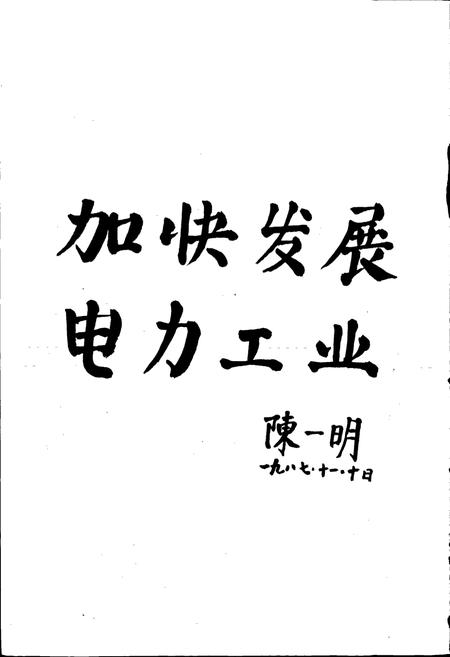 加快发展
电力工业
陳一明
一九八七·十一·十日